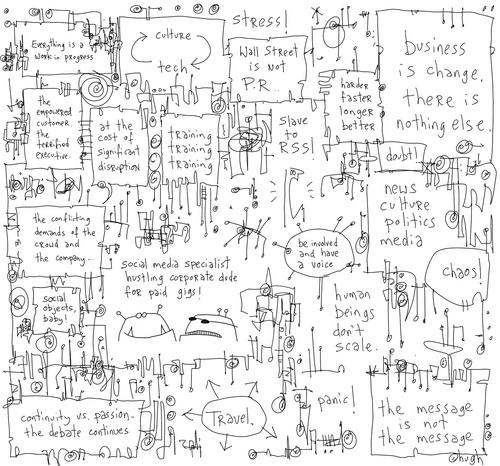 Everything is a
work in progress
culture
tech
STRESS!
Wall Street
is not
P.R.
business
is change.
there is
nothing else.
the
empowered
customer.
the
terrified
executive.
at the
cost of
significant
disruption
training
training
training
slave
to
RSS!
harder
faster
longer
better
doubt!
news
culture
politics
media
the conflicting
demands of the
crowd and
the company...
social media specialist
hustling corporate dude
for paid gigs!
be involved
and have
a voice
chaos!
social
objects,
baby!
human
beings
don't
scale.
continuity vs. passion-
the debate continues
Travel.
panic!
the message
is not
the message
@hugh